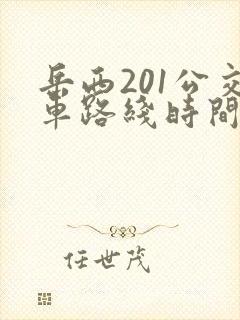 岳西201公交
車路綫時間
任世茂